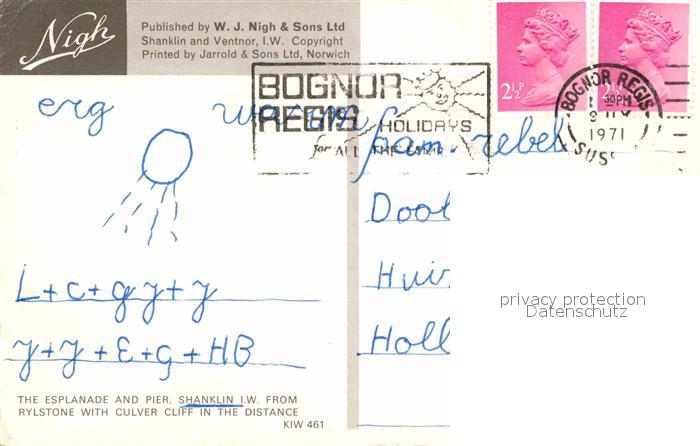 Nigh
Published by W. J. Nigh & Sons Ltd
Shanklin and Ventnor, I.W. Copyright
Printed by Jarrold & Sons Ltd, Norwich
2½P
2½P
BOGNOR REGIS
HOLIDAYS
for ALL THE
BOGNOR REGIS
30PM
1971
SUS
erg warm
fam. rebel
Dool
Hui
Holl
L+c+g y+y
y+y+E+G+HB
privacy protection
Datenschutz
THE ESPLANADE AND PIER, SHANKLIN I.W. FROM
RYLSTONE WITH CULVER CLIFF IN THE DISTANCE
KIW 461